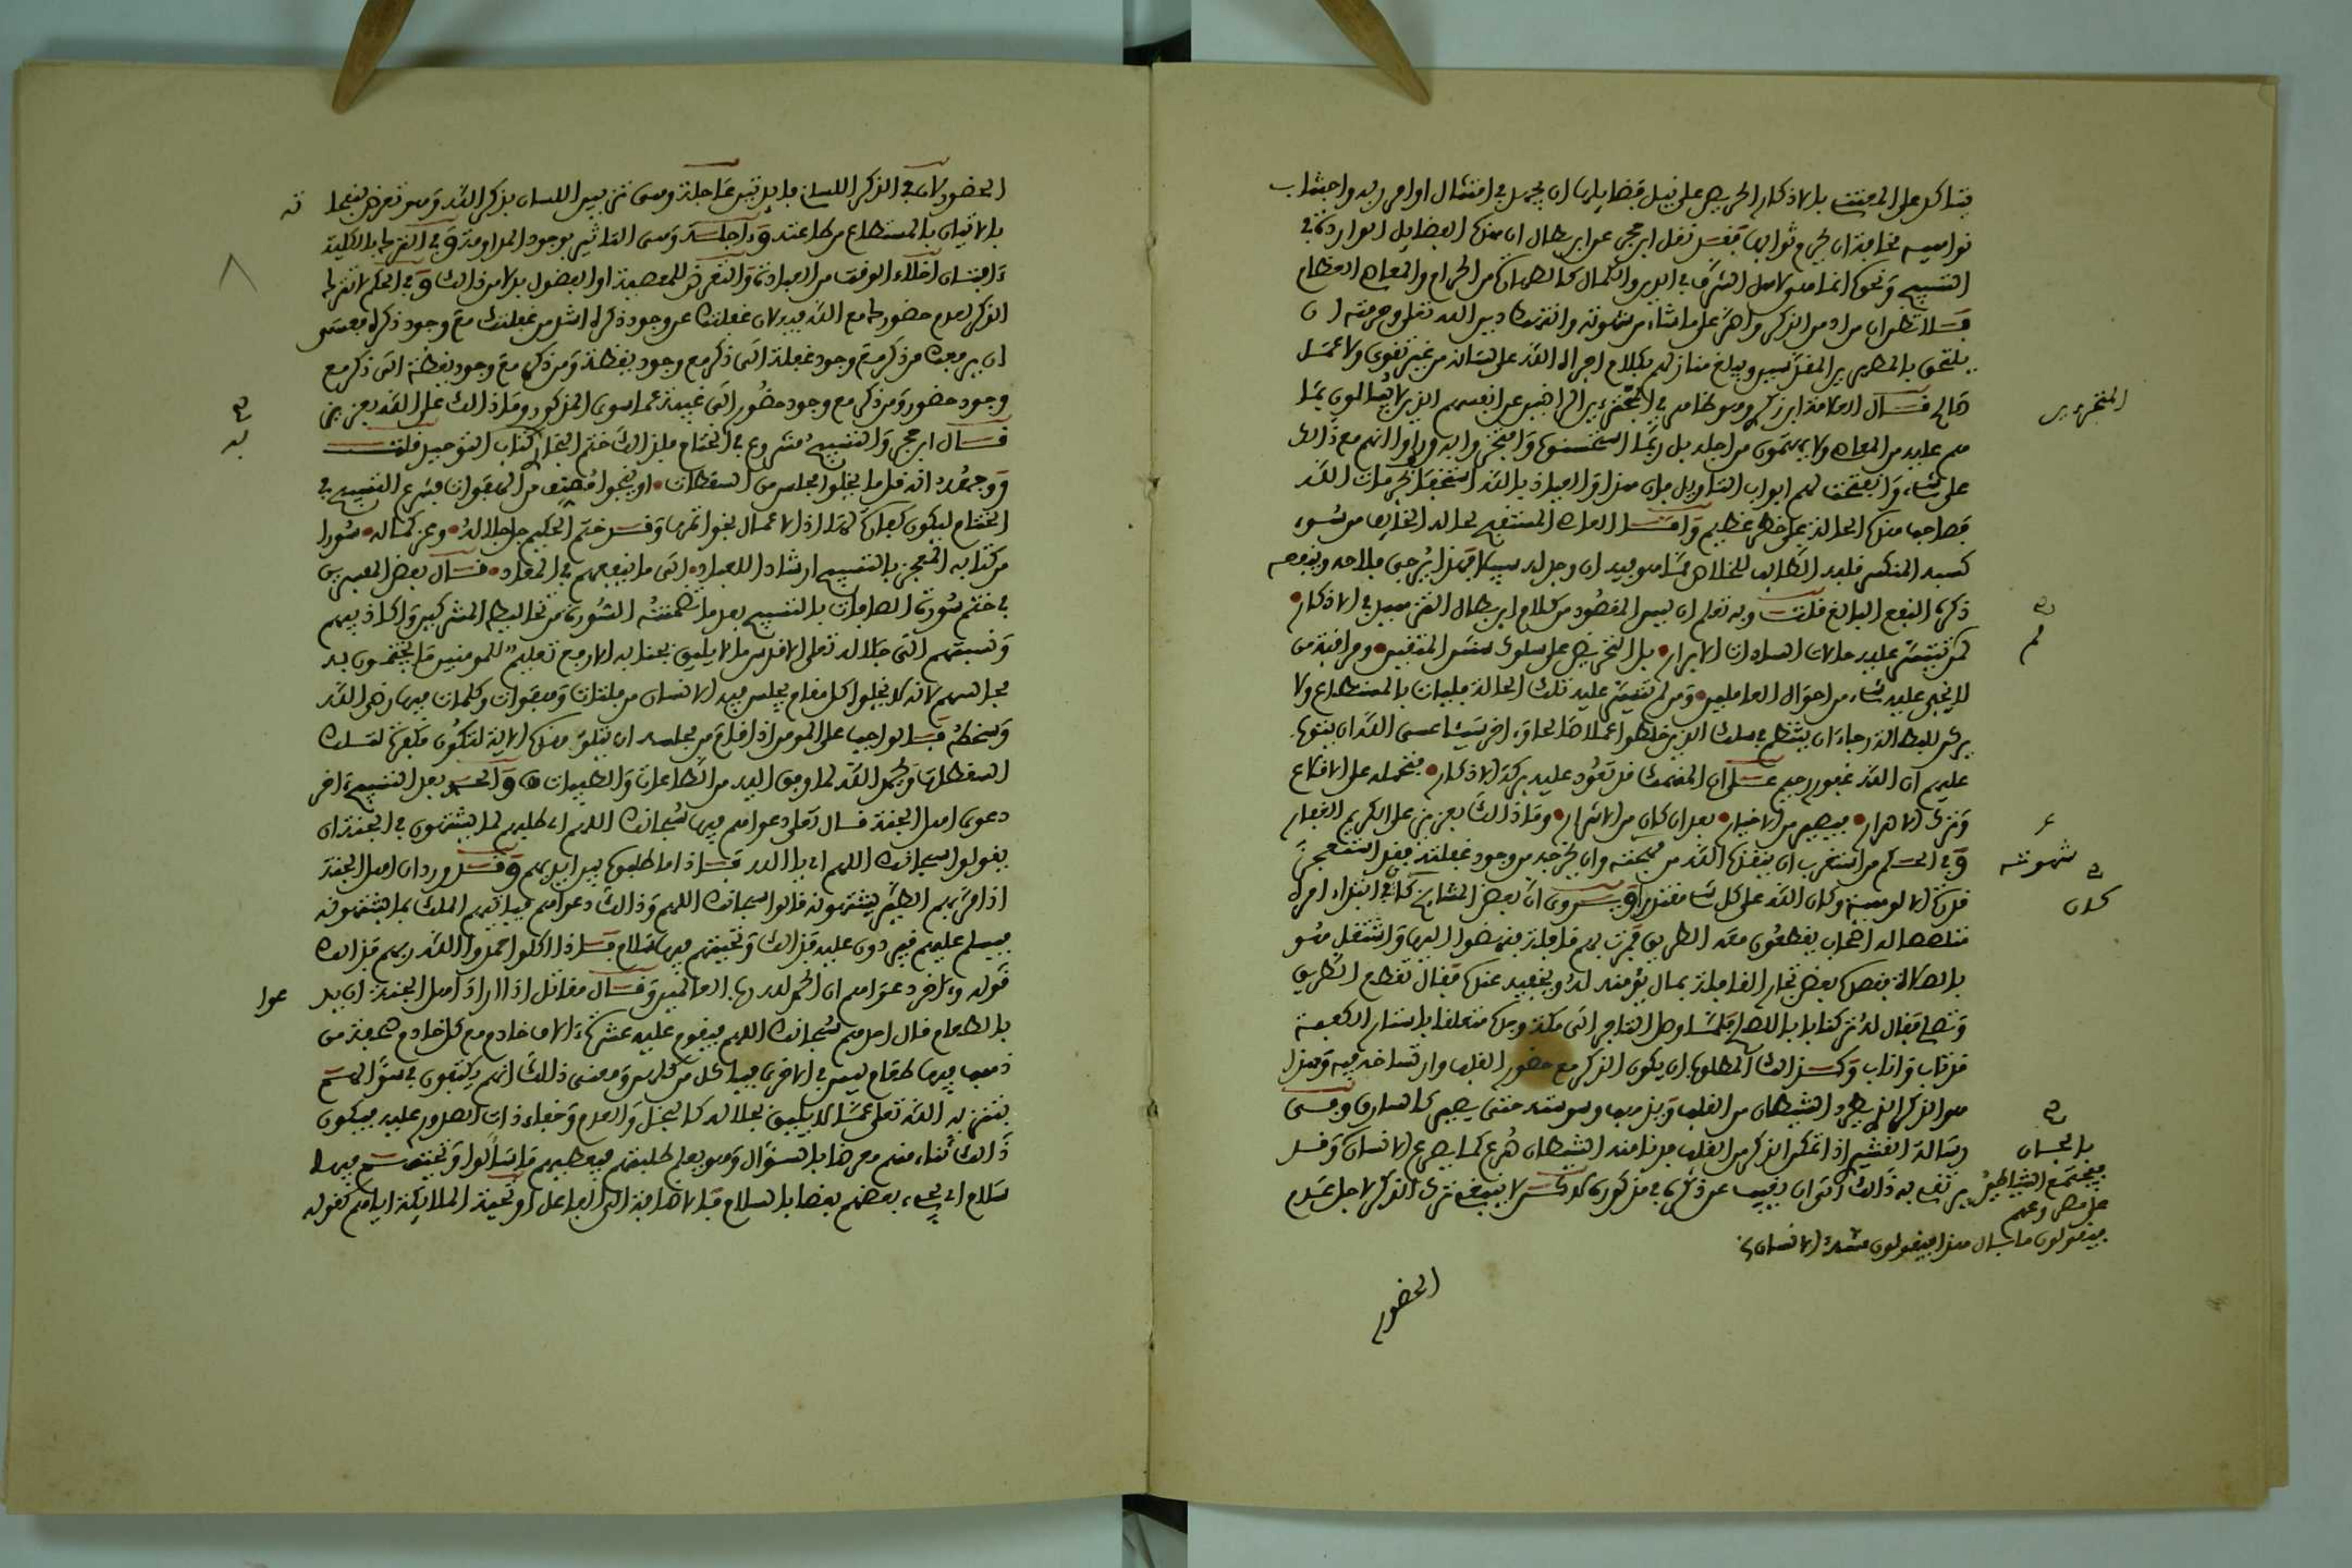 فتاكل على المعتنى بالاذكار الحريص على نيل فضايلها ان يجهل في امتثال اوامر ربه واجتناب
نواهيه مخافة ان يحرم ثوابها فقد نقل ابن حجر عن ابن بطال ان هذه الفضايل الواردة في
التسبيح ونحوه انما هي لاهل الشرف في الدين والكمال كالطهارة من الحرام والمعاصي العظام
فلا تظن ان من ادمن الذكر واصر على ما شاء من شهوته وانتهك دين الله تعلى وحرمته ان
يلتحق بالمطهرين المقدسين ويبلغ منازلهم بكلام اجراه الله على لسانه من غير تقوى ولا عمل
صالح قال العلامة ابن زكري وهو ظاهر في المجترءين الراضين عن انفسهم الذين لا يبالون بما
المتجرءين
هم عليه من المعاصي ولا يهتمون من اجله بل ربما استحسنوه وافتخروا به وراوا انهم مع ذالك
على شيء وانفتحت لهم ابواب التاويل فان هذا والعياذ بالله استخفاف بحرمات الله
فصاحب هذه الحالة على خطر عظيم واما العاصي المستقبح لحاله الخايف من سوء
كسبه المنكسر قلبه الطالب للخلاص مما هو فيه ان وجد له سبيلا فهذا يرجى فلاحه وينفعه
ذكره النفع البالغ قلت وبه تعلم ان ليس المقصود من كلام ابن بطال التزهيد في الاذكار
لمن لم تتيسر عليه حالات السادات الابرار بل التحريض على سلوك سنن المتقين ومراقبة من
لا يخفى عليه شيء من احوال العاملين ومن لم تتيسر عليه تلك الحالة فليات بالمستطاع ولا
يترك الباب رجاء ان ينتظم في سلك الذين خلطوا عملا صالحا وءاخر سيئا عسى الله ان يتوب
عليهم ان الله غفور رحيم على ان المنهمك قد تعود عليه بركة الاذكار فتحمله على الاقلاع
وترك الاصرار فيصير من الاخيار بعد ان كان من الاشرار وما ذالك بعزيز على الكريم الغفار
وفي الحكم من استغرب ان ينقذه الله من شهوته وان يخرجه من وجود غفلته فقد استعجز
شهوته
قدرة الالوهية وكان الله على كل شيء مقتدرا ويروى ان بعض المشايخ كان في ابتداء امره
كان
متلصصا له اصحاب يقطعون معه الطريق فمرت بهم قافلة فنهضوا اليها واشتغل هو
بالصلاة فقصده بعض تجار القافلة بمال يؤمنه لديه ويخفيه عنده فقال تقطع الطريق
وتصلي فقال له نترك بابا بالصلاح فلما وصل التاجر الى مكة وجده متعلقا باستار الكعبة
قد تاب واناب وكذالك المطلوب ان يكون الذكر مع حضور القلب وارتساخه فيه وهذا
هو الذكر الذي يطرد الشيطان من القلب ويذهب وسوسته حتى يصير كالسارق وفي
رسالة القشيري اذا تمكن الذكر من القلب فان دنا منه الشيطان صرع كما يصرع الانسان وقد
بالجان
فيجتمع الشياطين
على مصروعهم
فيقولون ما بال هذا فيقولون مسه الانسان
يرتقي به ذالك الى ان يغيب عن ذكره في مذكوره لاكن لا ينبغي ترك الذكر لاجل عدم
الحضور
الحضور لان في الذكر اللساني فايدتين عاجلة وهي تزيين اللسان بذكر الله وهو تعرض لنفحا
ته
بالاتيان بالمستطاع من طاعته وءاجلة وهي التاثير بوجود المداومة وفي الترك بالكلية
ءافتان اخلاء الوقت من العبادة والتعرض للمعصية او الفضول بدلا من ذالك وفي الحكم لا تترك
الذكر لعدم حضورك مع الله فيه لان غفلتك عن وجود ذكره اشد من غفلتك مع وجود ذكره فعسى
ان يرفعك من ذكر مع وجود غفلة الى ذكر مع وجود يقظة ومن ذكر مع وجود يقظة الى ذكر مع
وجود حضور ومن ذكر مع وجود حضور الى غيبة عما سوى المذكور وما ذالك على الله بعزيز
قال ابن حجر والتسبيح مشروع في الختام فلذالك ختم البخاري كتاب التوحيد قلت
ووجهه انه قل ما يخلوا مجلس من السقطات او ينجوا مصنف من الهفوات فشرع التسبيح في
الختام ليكون كفارة لها اذ الاعمال بخواتمها وقد ختم الحكيم جل جلاله وعز كماله سورا
من كتابه المعجز بالتسبيح ارشادا للعباد الى ما ينفعهم في المعاد قال بعض المفسرين
في ختم سورة الصافات بالتسبيح بعد ما تضمنته السورة من تخاليط المشركين واكاذيبهم
ونسبتهم الى جلاله تعلى الاقدس ما لا يليق بجنابه الارفع تعليم للمومنين ما يختمون به
مجالسهم لانه لا يخلوا كل مقام يجلس فيه الانسان من فلتات وهفوات وكلمات فيها رضى الله
وسخطه فالواجب على المومن اذا قام من مجلسه ان يتلو هذه الاية لتكون مكفرة لتلك
السقطات وحمدا لله لما وفق اليه من الطاعات والطيبات والحمد بعد التسبيح ءاخر
دعوى اهل الجنة قال تعلى دعواهم فيها سبحانك اللهم اي طلبهم لما يشتهون في الجنة ان
يقولوا سبحانك اللهم اي يا الله فاذا ما طلبوه بين ايديهم وقد ورد ان اهل الجنة
اذا مر بهم الطير يشتهونه قالوا سبحانك اللهم وذالك دعواهم فياتيهم الملك بما يشتهونه
فيسلم عليهم فيردون عليه فذالك وتحيتهم فيها سلام فاذا اكلوا حمدوا الله ربهم فذالك
قوله وءاخر دعواهم ان الحمد لله رب العالمين وقال مقاتل اذا اراد اهل الجنة ان يد
عوا
بالطعام قال احدهم سبحانك اللهم فيقوم عليه عشرة ءالاف خادم مع كل خادم صحفة من
ذهب فيها طعام ليس في الاخرى فياكل من كلهن ومعنى ذالك انهم يكتفون في سؤالهم
بتنزيه الله تعلى عما لا يليق بجلاله كالبخل والعدم وخفاء ذات الصدور عليه فيكون
ذالك ثناء منهم معرضا بالسؤال وهو يعلم طلبتهم فيعطيهم ما سالوا وتحيتهم فيها
سلام اي يحيي بعضهم بعضا بالسلام فالاضافة الى الفاعل او تحية الملايكة اياهم كقوله